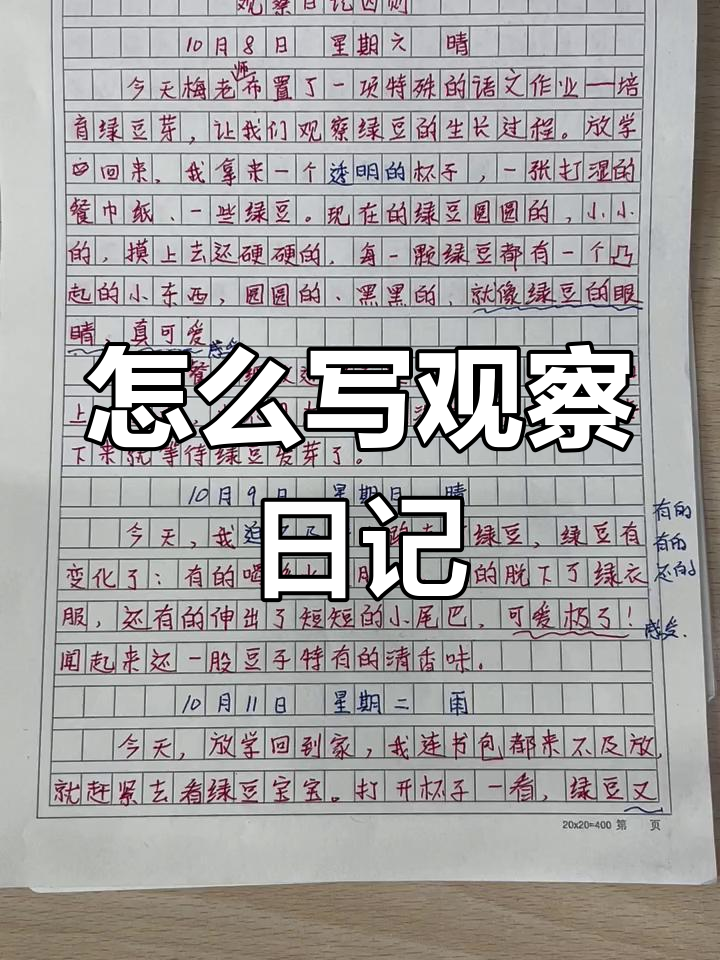 观察日记四则
10月8日 星期六 晴
师
今天梅老布置了一项特殊的语文作业——培
育绿豆芽，让我们观察绿豆的生长过程。放学
回来，我拿来一个透明的杯子，一张打湿的
餐巾纸、一些绿豆。现在的绿豆圆圆的，小小
的，摸上去还硬硬的，每一颗绿豆都有一个凸
起的小东西，圆圆的、黑黑的，就像绿豆的眼
睛，真可爱
感受
怎么写观察
上
下来就等待绿豆发芽了。
10月9日 星期日 晴
日记
有的
今天，我迫 绿豆，绿豆有
有的
变化了：有的喝 的脱下了绿衣
还的
服，还有的伸出了短短的小尾巴，可爱极了！
感受.
闻起来还一股豆子特有的清香味.
10月11日 星期二 雨
今天，放学回到家，我连书包都来不及放，
就赶紧去看绿豆宝宝。打开杯子一看，绿豆又
20x20=400 第 页